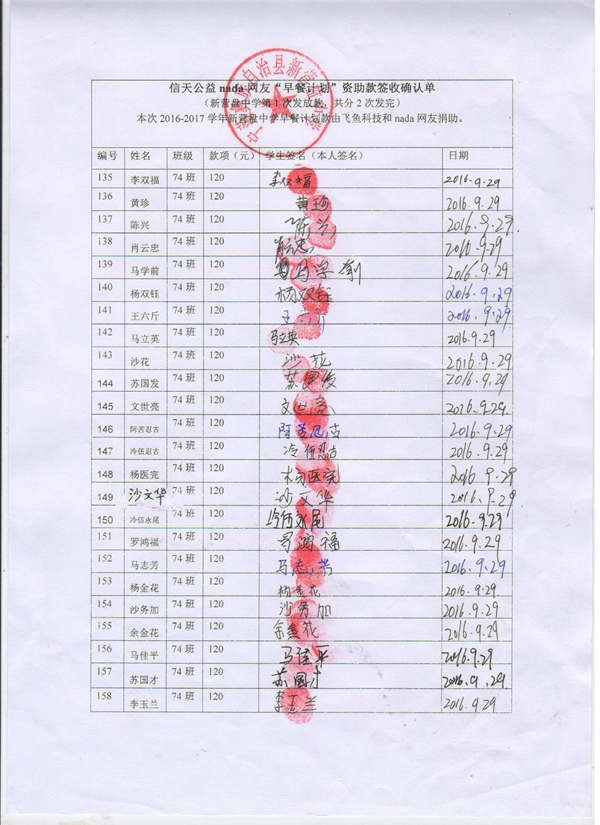 信天公益 nada 网友“早餐计划”资助款签收确认单
（新营盘中学第 1 次发放款，共分 2 次发完）
本次 2016-2017 学年新营盘中学早餐计划款由飞鱼科技和 nada 网友捐助。
编号 姓名 班级 款项（元） 学生签名（本人签名） 日期
135 李双福 74 班 120 李双福 2016.9.29
136 黄珍 74 班 120 黄珍 2016.9.29
137 陈兴 74 班 120 陈兴 2016.9.29
138 肖云忠 74 班 120 肖云忠 2016.9.29
139 马学前 74 班 120 马学前 2016.9.29
140 杨双钰 74 班 120 杨双钰 2016.9.29
141 王六斤 74 班 120 王六斤 2016.9.29
142 马立英 74 班 120 马立英 2016.9.29
143 沙花 74 班 120 沙花 2016.9.29
144 苏国发 74 班 120 苏国发 2016.9.29
145 文世亮 74 班 120 文世亮 2016.9.29
146 阿苦忍古 74 班 120 阿苦忍古 2016.9.29
147 冷伍忍古 74 班 120 冷伍忍古 2016.9.29
148 杨医完 74 班 120 杨医完 2016.9.29
149 沙文华 74 班 120 沙文华 2016.9.29
150 冷伍永尾 74 班 120 冷伍永尾 2016.9.29
151 罗鸿福 74 班 120 罗鸿福 2016.9.29
152 马志芳 74 班 120 马志芳 2016.9.29
153 杨金花 74 班 120 杨金花 2016.9.29
154 沙务加 74 班 120 沙务加 2016.9.29
155 余金花 74 班 120 余金花 2016.9.29
156 马佳平 74 班 120 马佳平 2016.9.29
157 苏国才 74 班 120 苏国才 2016.9.29
158 李玉兰 74 班 120 李玉兰 2016.9.29